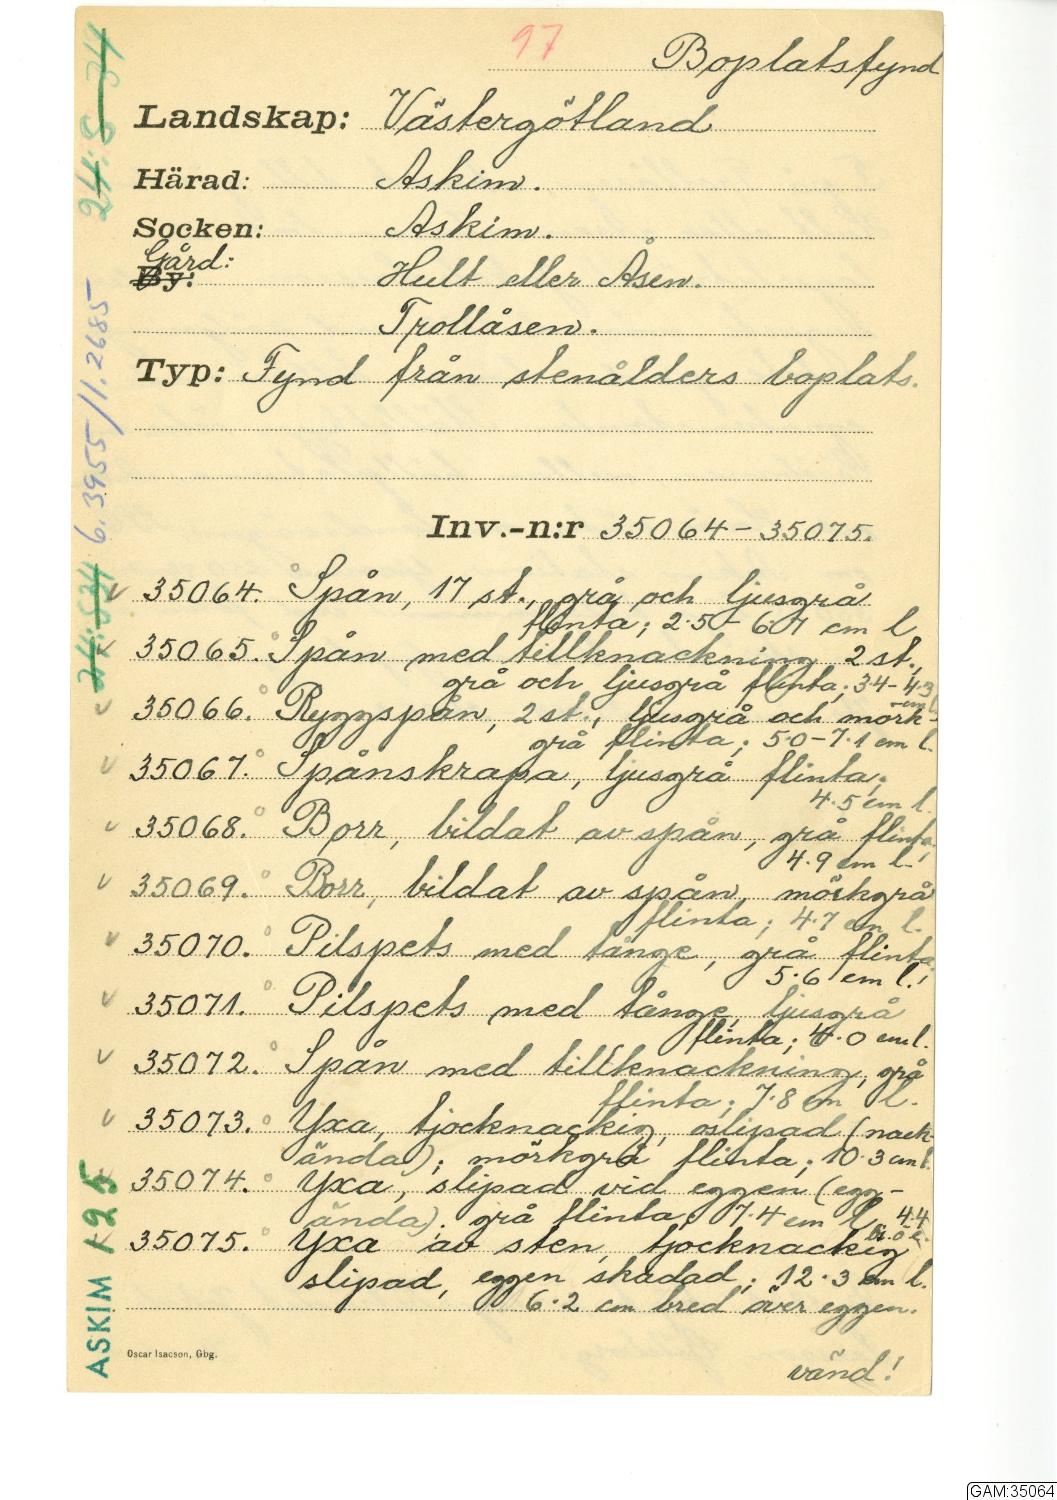 97
Boplatsfynd
Landskap: Västergötland
Härad: Askim.
Socken: Askim.
Gård:
By: Hult eller Åsen.
Trollåsen.
Typ: Fynd från stenålders boplats.
Inv.-n:r 35064-35075.
35064. Spån, 17 st., grå och ljusgrå
flinta; 2.5-6.7 cm l.
35065. Spån med tillknackning 2 st.,
grå och ljusgrå flinta; 3.4-4.3
cm l.
35066. Ryggspån, 2 st., ljusgrå och mörk-
grå flinta; 5.0-7.1 cm l.
35067. Spånskrapa, ljusgrå flinta;
4.5 cm l.
35068. Borr, bildat av spån, grå flinta;
4.9 cm l.
35069. Borr, bildat av spån, mörkgrå
flinta; 4.7 cm l.
35070. Pilspets med tånge, grå flinta
5.6 cm l.
35071. Pilspets med tånge, ljusgrå
flinta; 4.0 cm l.
35072. Spån med tillknackning, grå
flinta; 7.8 cm l.
35073. Yxa, tjocknackig, oslipad (nack-
ända); mörkgrå flinta; 10.3 cm l.
35074. Yxa, slipad vid eggen (egg-
ända). grå flinta, 7.4 cm l., 4.4
br. ö. e.
35075. Yxa av sten, tjocknackig
slipad, eggen skadad; 12.3 cm l.
6.2 cm bred över eggen.
Oscar Isacson, Gbg.
vänd!
24:S 34
6.3955/1.2685
24:S34
ASKIM 125
GAM:35064